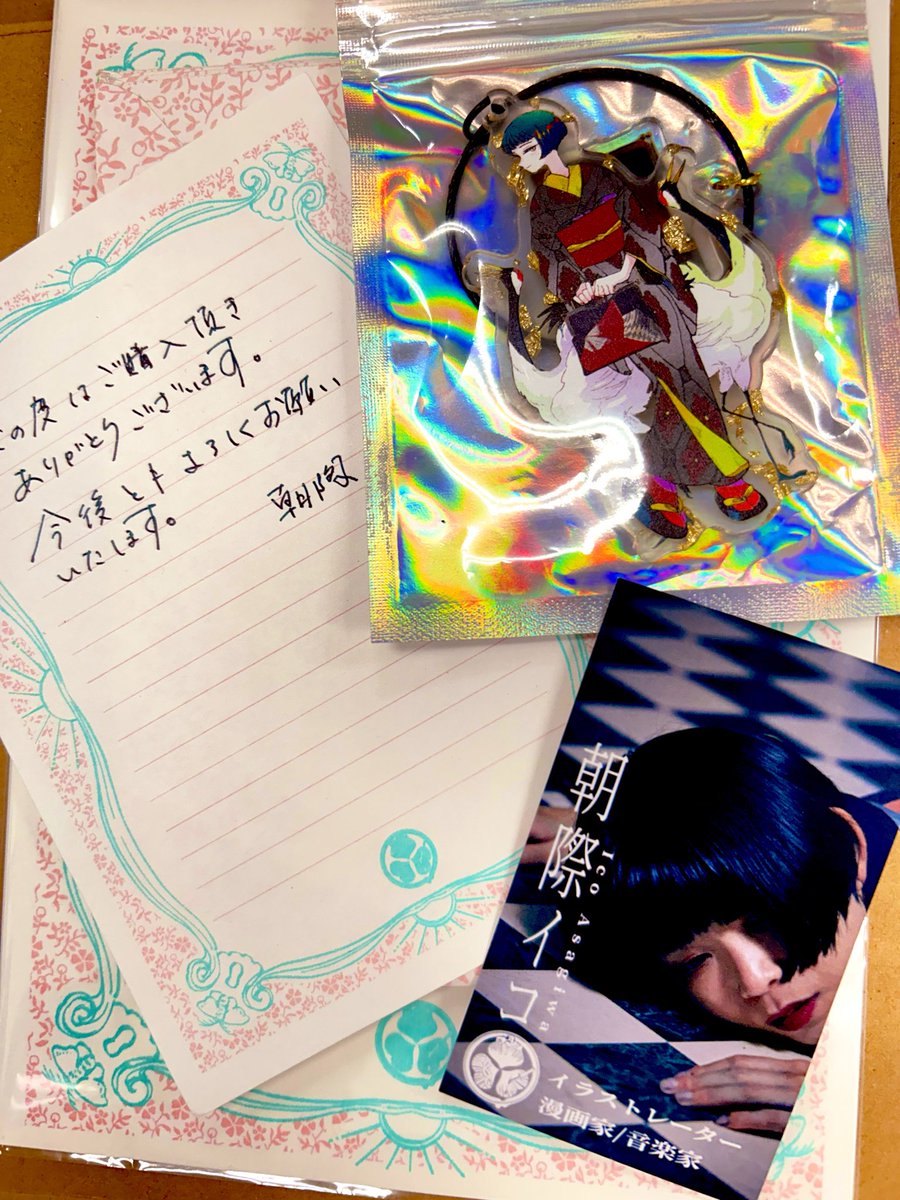 この度はご購入頂き
ありがとうございます。
今後ともよろしくお願い
いたします。
朝際
朝際イコ
Ico Asagiwa
イラストレーター
漫画家/音楽家